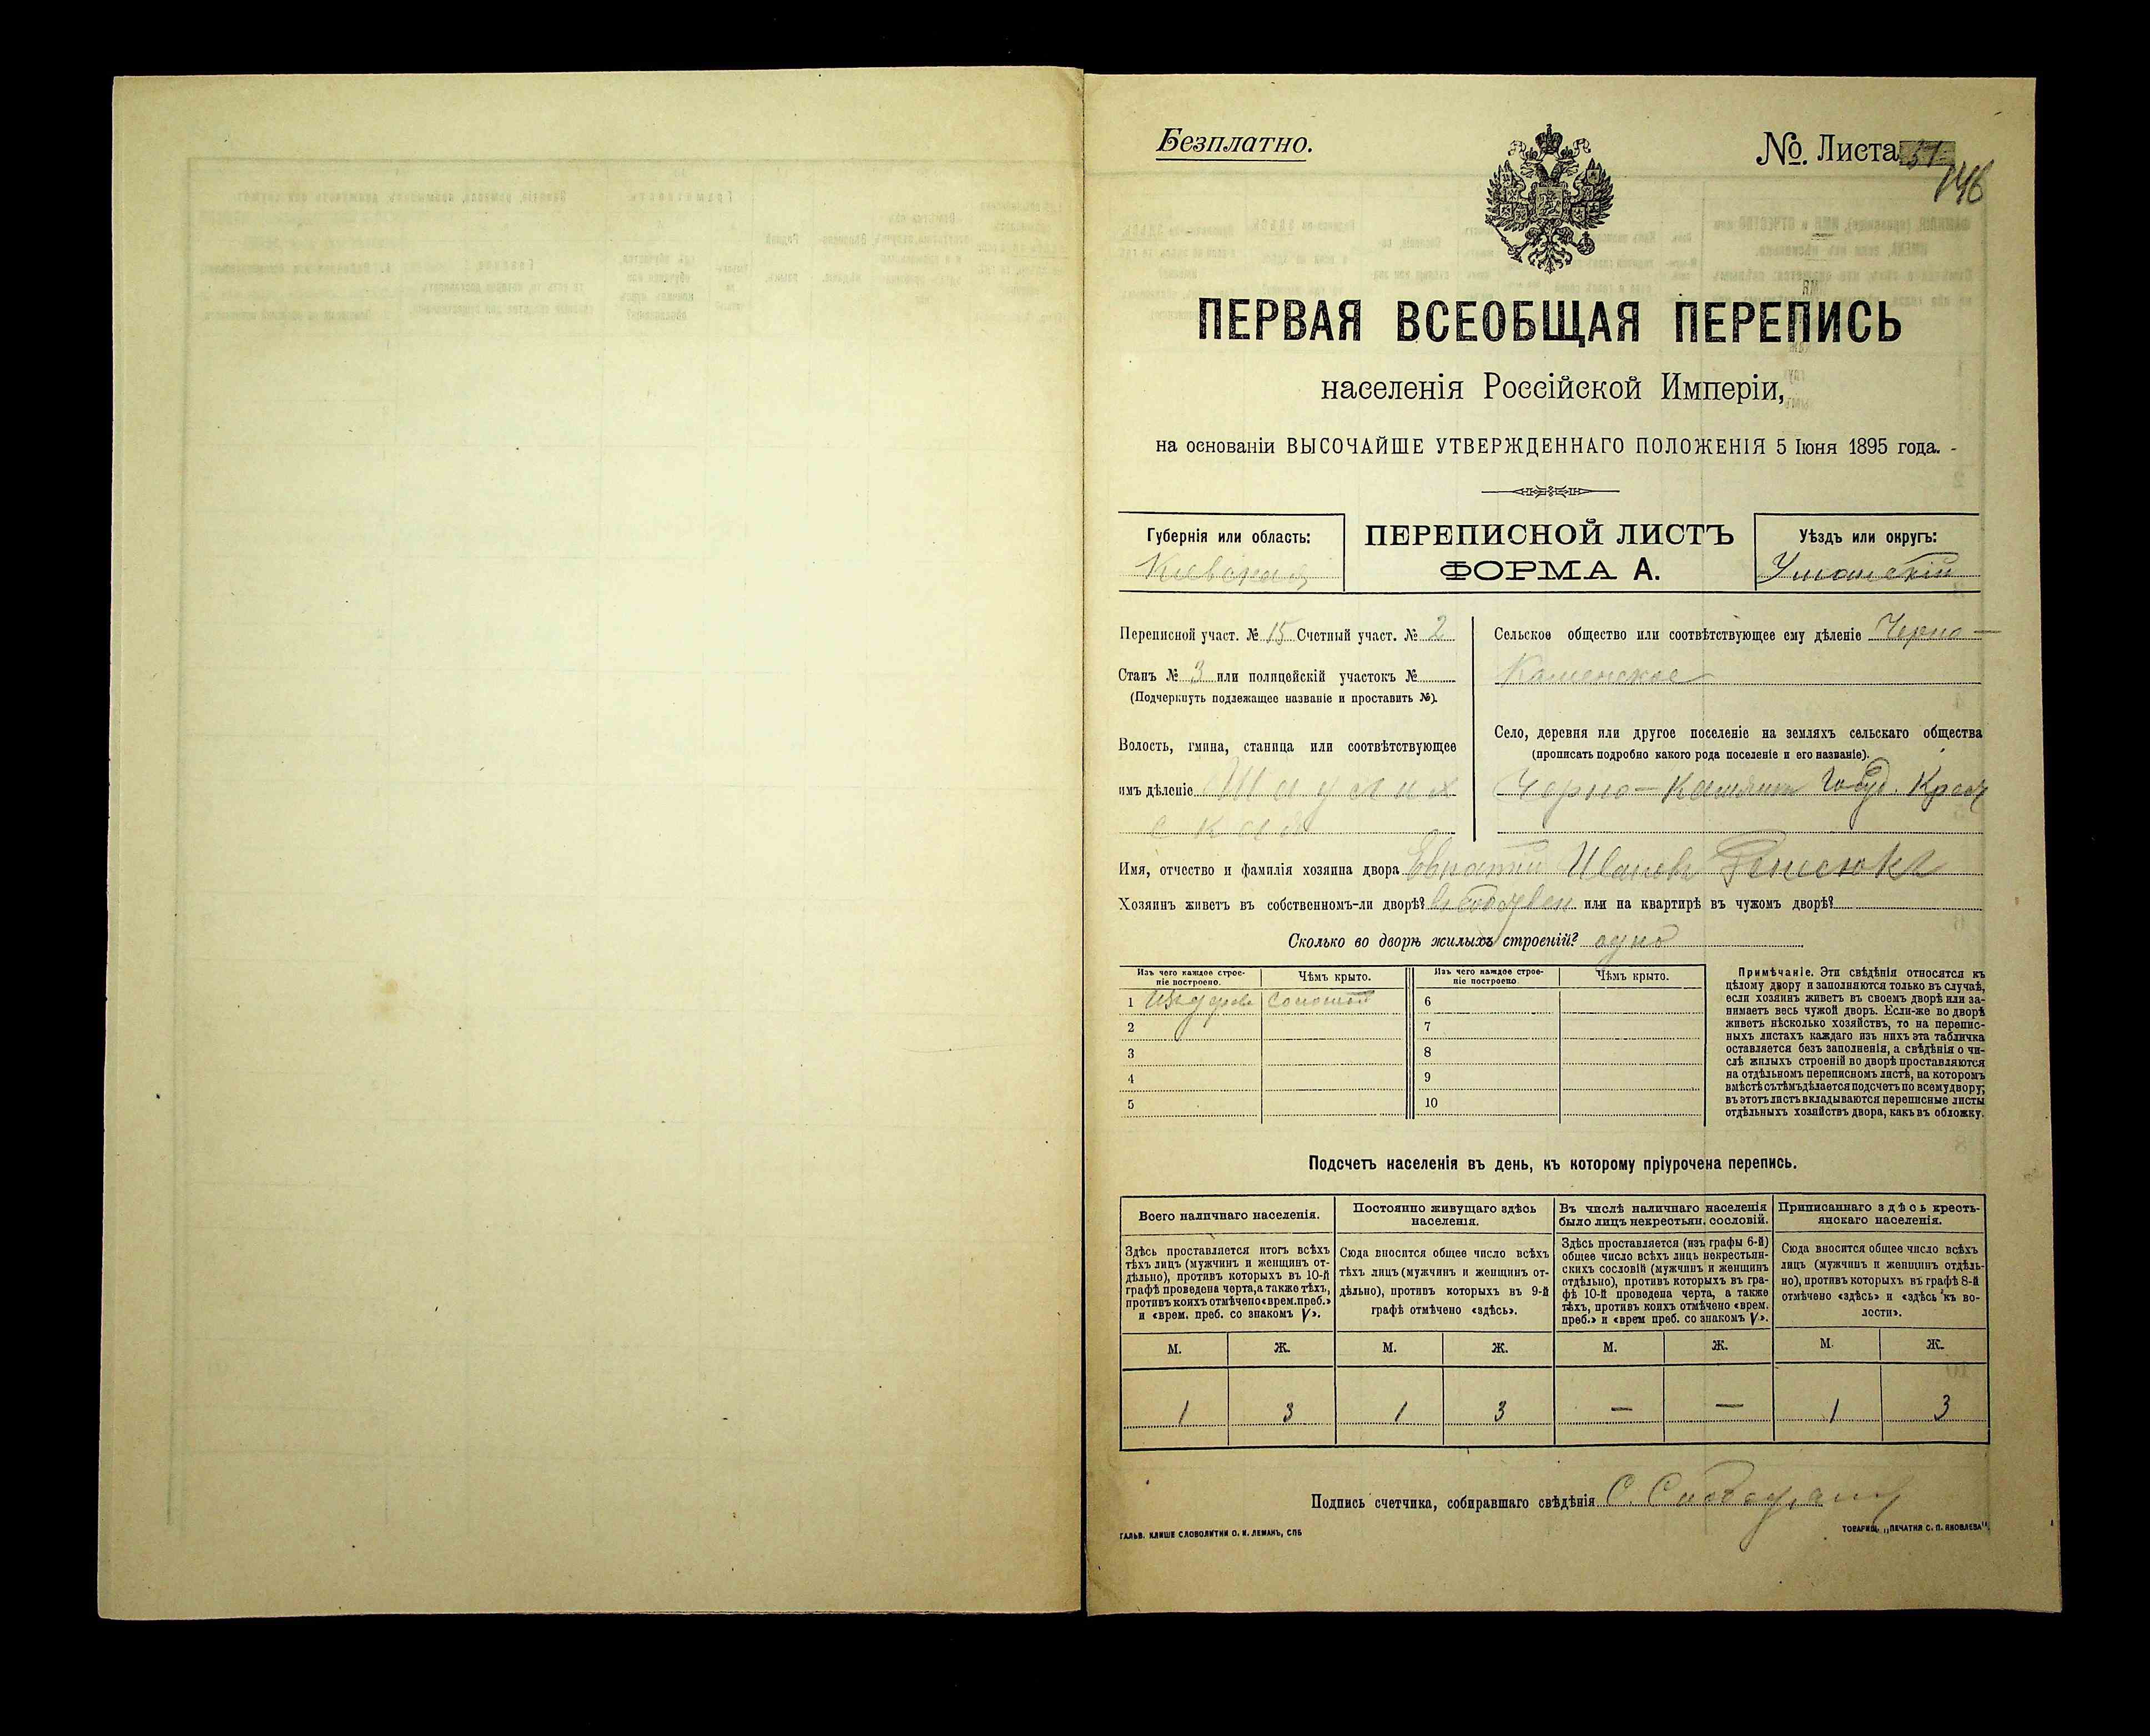 Безплатно.
№. Листа 37
146
ПЕРВАЯ ВСЕОБЩАЯ ПЕРЕПИСЬ
населенія Россійской Имперіи,
на основаніи ВЫСОЧАЙШЕ УТВЕРЖДЕННАГО ПОЛОЖЕНІЯ 5 Іюня 1895 года.
Губернія или область:
Кіевская
ПЕРЕПИСНОЙ ЛИСТЪ
ФОРМА А.
Уѣздъ или округъ:
Уманскій
Переписной участ. № 15 Счетный участ. № 2
Станъ № 3 или полицейскій участокъ №
(Подчеркнуть подлежащее названіе и проставить №).
Волость, гмина, станица или соотвѣтствующее
имъ дѣленіе
ская
Сельское общество или соотвѣтствующее ему дѣленіе Черно-
Каменское
Село, деревня или другое поселеніе на земляхъ сельскаго общества
(прописать подробно какого рода поселеніе и его названіе).
Черно-
Имя, отчество и фамилія хозяина двора Ивановъ
Хозяинъ живетъ въ собственномъ-ли дворѣ? или на квартирѣ въ чужомъ дворѣ?
Сколько во дворѣ жилыхъ строеній? одно
Изъ чего каждое строе-
ніе построено.
Чѣмъ крыто.
Изъ чего каждое строе-
ніе построено.
Чѣмъ крыто.
1 изъ дерева соломой
2
3
4
5
6
7
8
9
10
Примѣчаніе. Эти свѣдѣнія относятся къ
цѣлому двору и заполняются только въ случаѣ,
если хозяинъ живетъ въ своемъ дворѣ или за-
нимаетъ весь чужой дворъ. Если-же во дворѣ
живетъ нѣсколько хозяйствъ, то на перепис-
ныхъ листахъ каждаго изъ нихъ эта табличка
оставляется безъ заполненія, а свѣдѣнія о чи-
слѣ жилыхъ строеній во дворѣ проставляются
на отдѣльномъ переписномъ листѣ, на которомъ
вмѣстѣ съ тѣмъ дѣлается подсчетъ по всему двору;
въ этотъ листъ вкладываются переписные листы
отдѣльныхъ хозяйствъ двора, какъ въ обложку.
Подсчетъ населенія въ день, къ которому пріурочена перепись.
Всего наличнаго населенія.
Здѣсь проставляется итогъ всѣхъ
тѣхъ лицъ (мужчинъ и женщинъ от-
дѣльно), противъ которыхъ въ 10-й
графѣ проведена черта, а также тѣхъ,
противъ коихъ отмѣчено «врем. преб.»
и «врем. преб. со знакомъ V».
Постоянно живущаго здѣсь
населенія.
Сюда вносится общее число всѣхъ
тѣхъ лицъ (мужчинъ и женщинъ от-
дѣльно), противъ которыхъ въ 9-й
графѣ отмѣчено «здѣсь».
Въ числѣ наличнаго населенія
было лицъ некрестьян. сословій.
Здѣсь проставляется (изъ графы 6-й)
общее число всѣхъ лицъ некрестьян-
скихъ сословій (мужчинъ и женщинъ
отдѣльно), противъ которыхъ въ гра-
фѣ 10-й проведена черта, а также
тѣхъ, противъ коихъ отмѣчено «врем.
преб.» и «врем преб. со знакомъ V».
Приписаннаго здѣсь кресть-
янскаго населенія.
Сюда вносится общее число всѣхъ
лицъ (мужчинъ и женщинъ отдѣль-
но), противъ которыхъ въ графѣ 8-й
отмѣчено «здѣсь» и «здѣсь къ во-
лости».
М. Ж. М. Ж. М. Ж. М. Ж.
1 3 1 3 — — 1 3
Подпись счетчика, собиравшаго свѣдѣнія
ГАЛЬВ. КЛИШЕ СЛОВОЛИТНИ О. И. ЛЕМАНЪ, СПБ
ТОВАРИЩ. „ПЕЧАТНЯ С. П. ЯКОВЛЕВА".